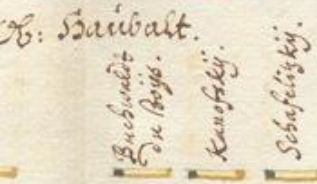 R: Haübalt.
Buchwaldt
du Boÿs.
Kanofskÿ.
Schafelitzkÿ.